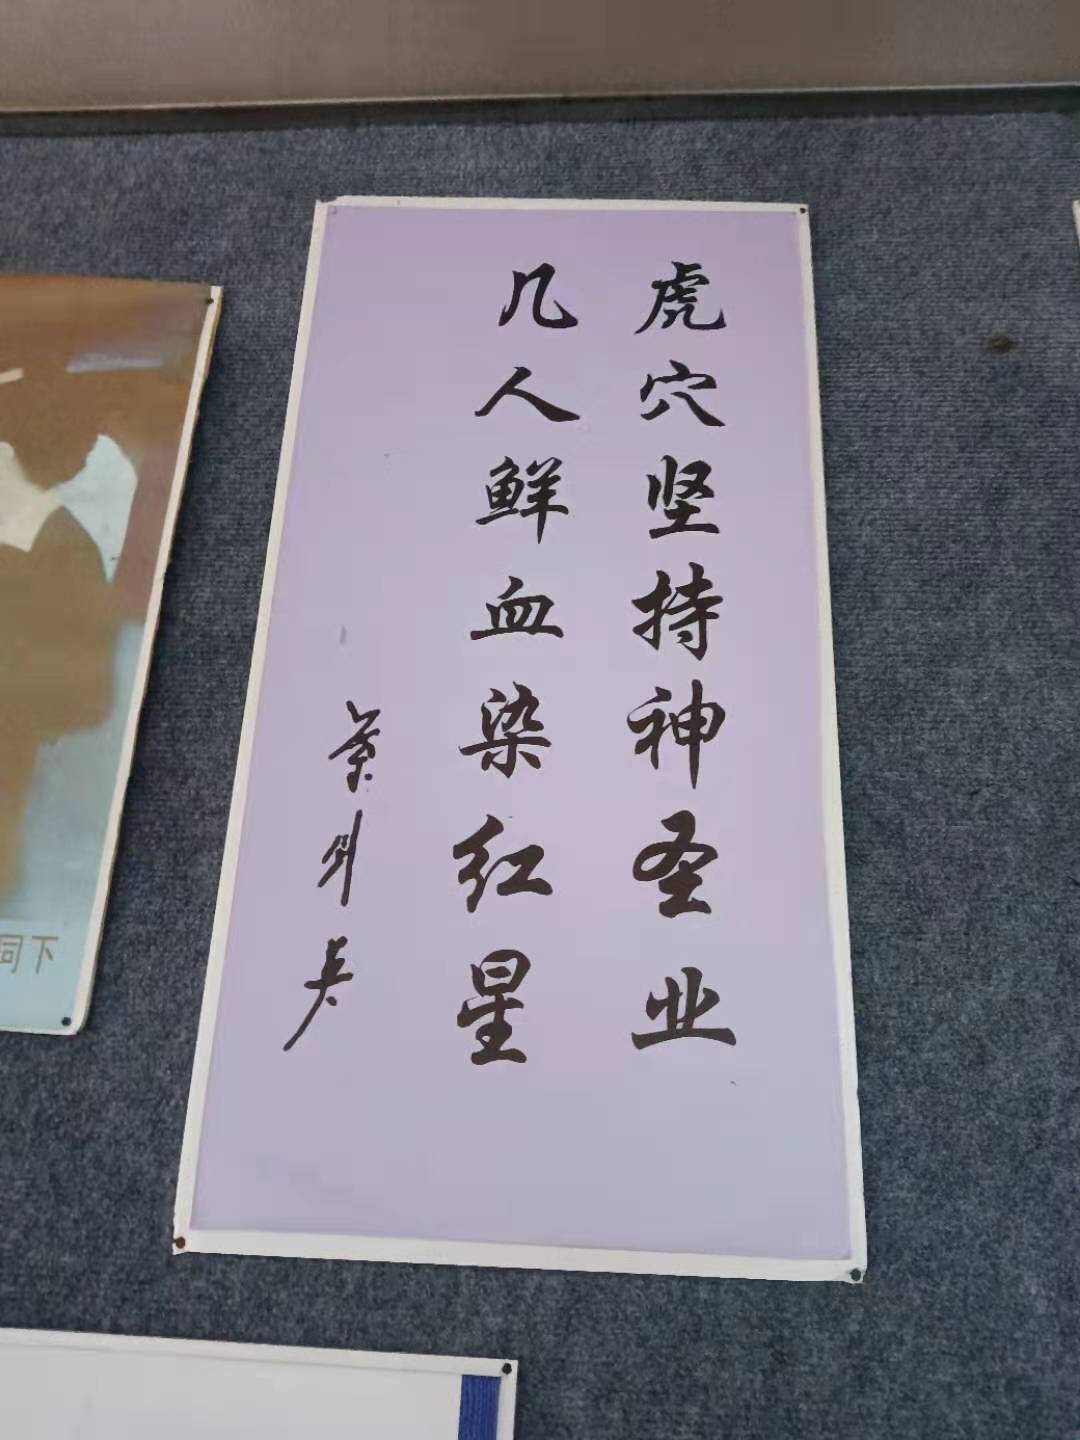 虎穴坚持神圣业
几人鲜血染红星
葉剑英
同下